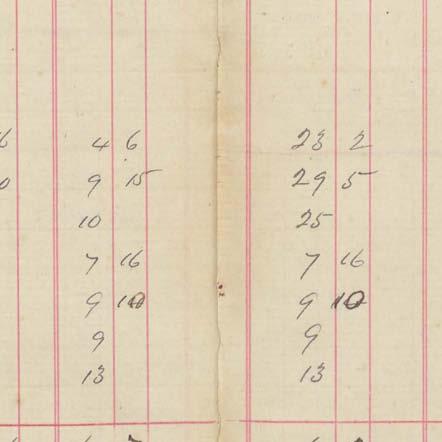 6 4 6 23 2
0 9 15 29 5
10 25
7 16 7 16
9 10 9 10
9 9
13 13